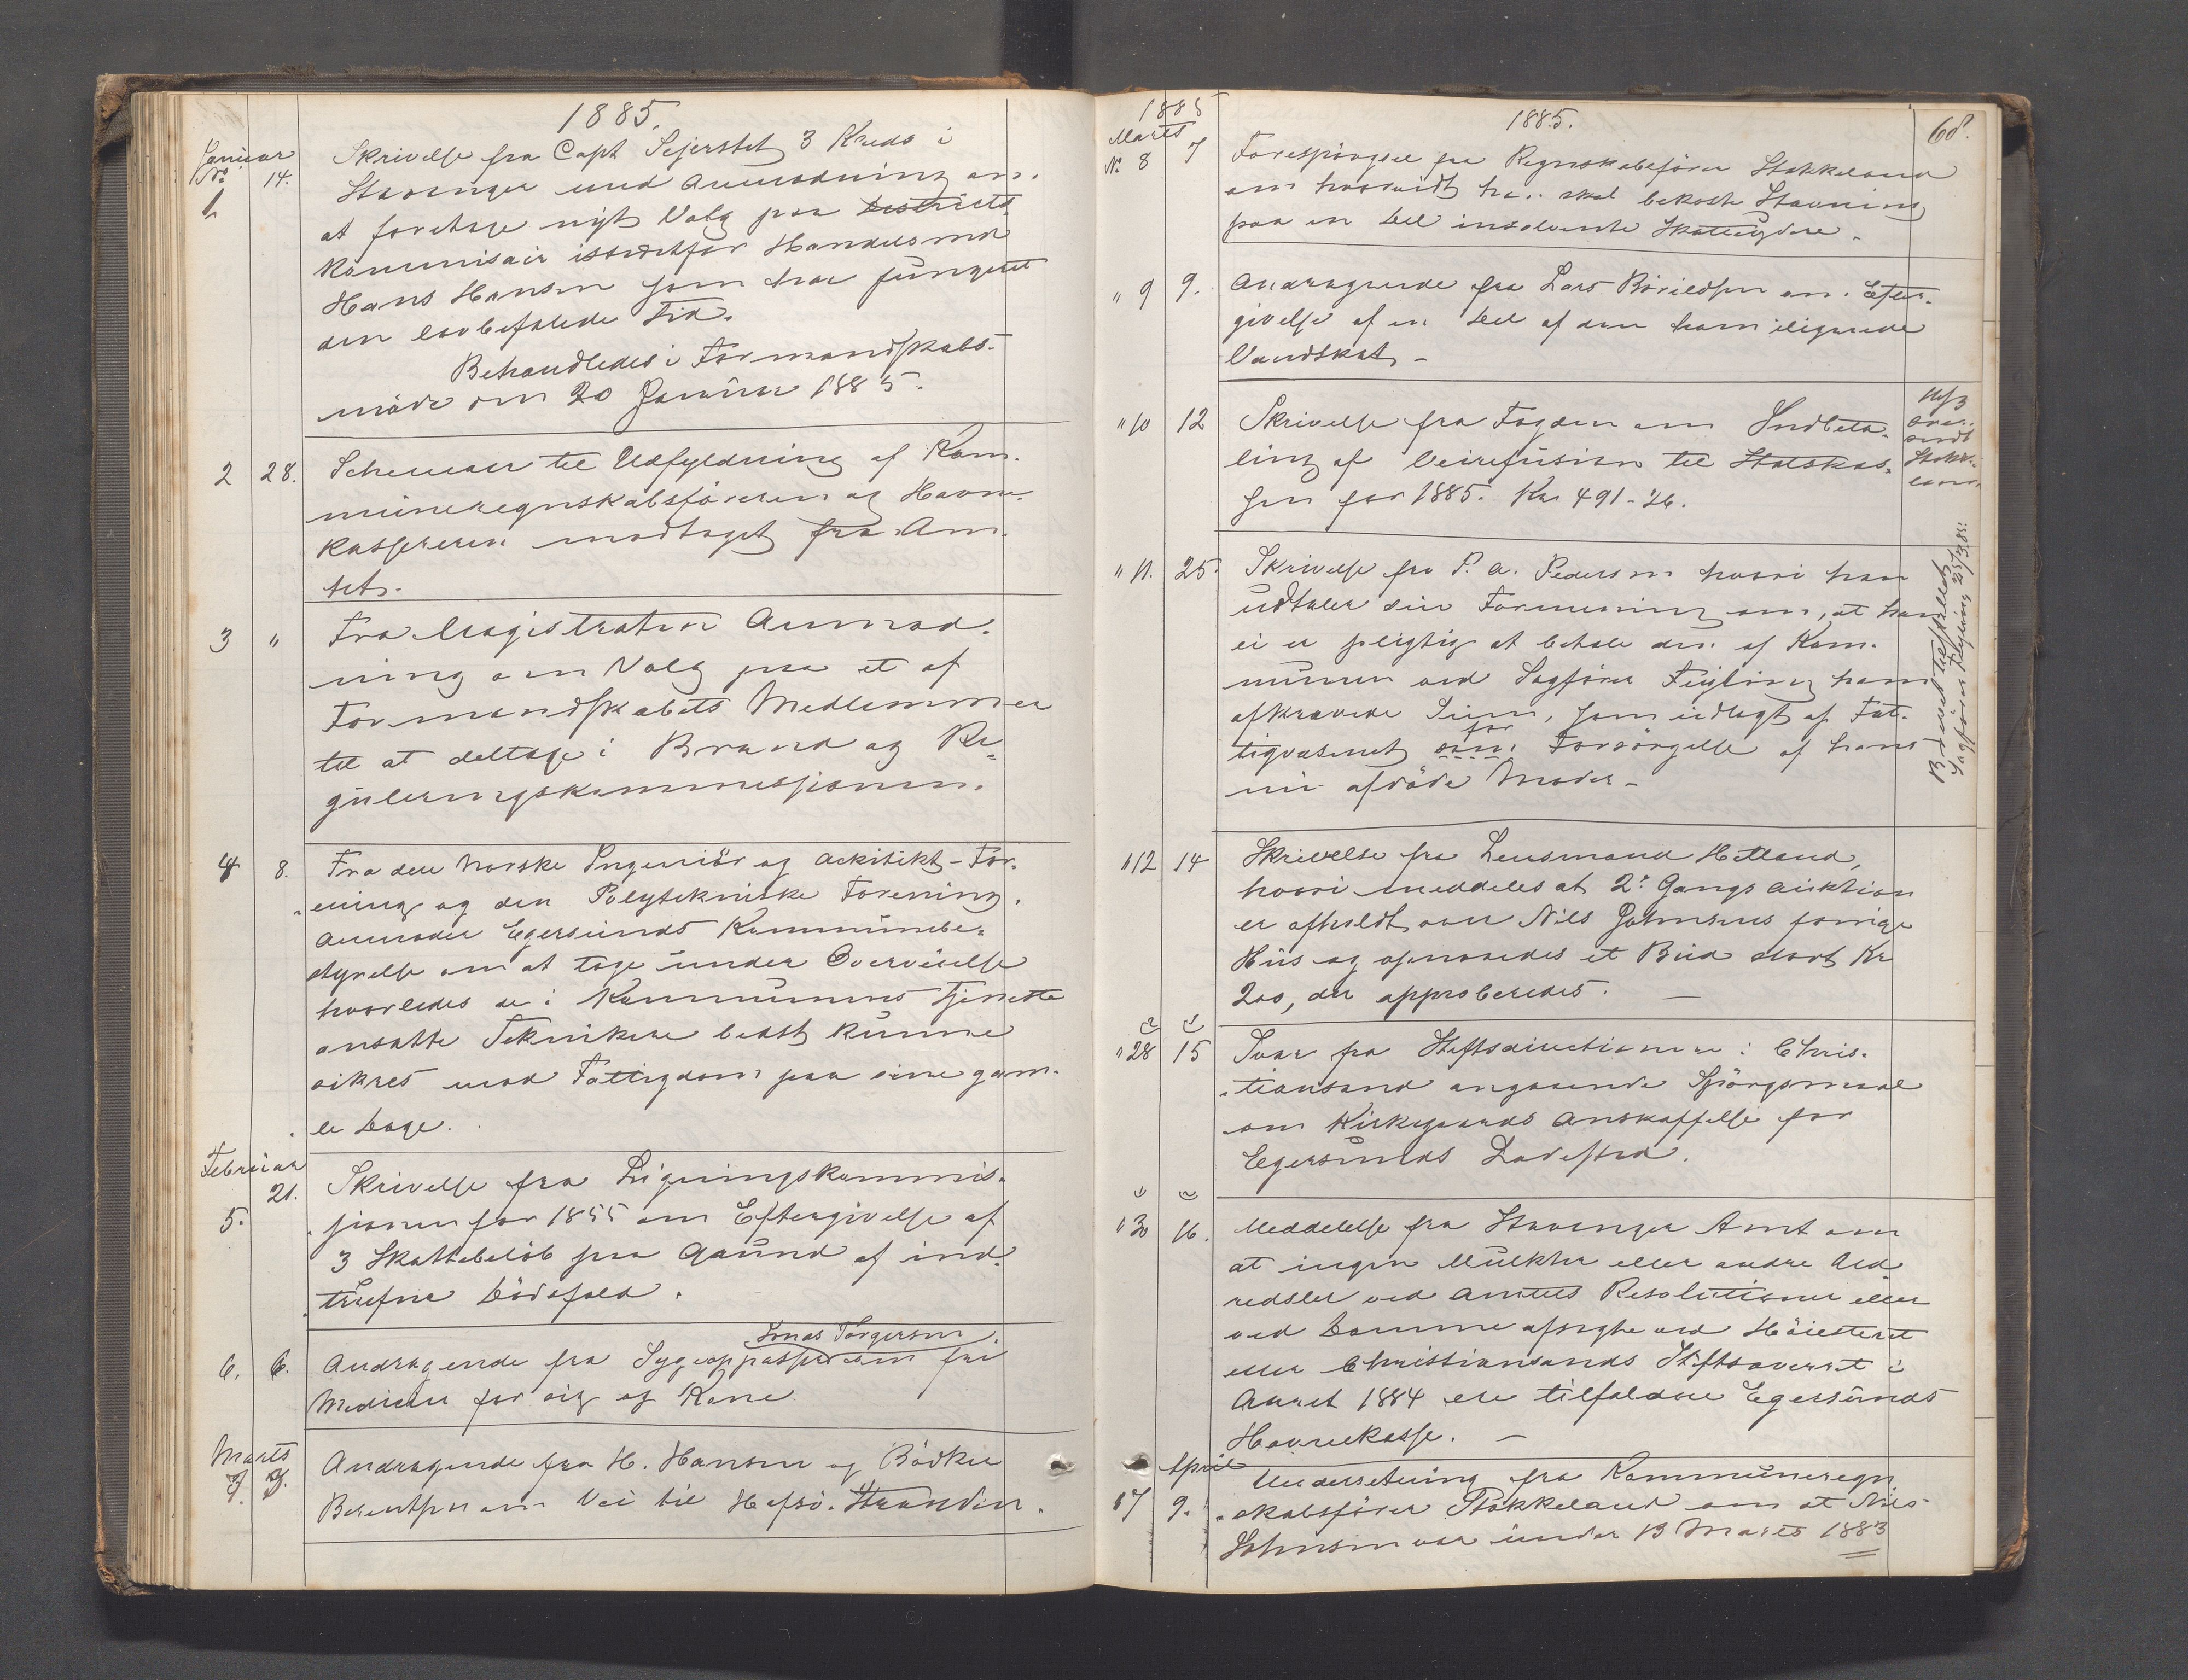 1885.
Januar
No 14.
1.
Skrivelse fra Capt Sejersted 3 Kreds i
Stavanger med Anmodning om
at foretage nyt Valg paa Destricts
Kommisair istedetfor Handelsmd
Hans Hansen som har fungeret
den lovbefalede Tid.
Behandledes i Formandskabs-
møde den 20 Januar 1885.
2 28. Schemaer til Udfyldning af Kom-
muneregnskabsføreren og Havne-
kassereren modtaget fra Am-
tet.
3 " Fra Magistraten Anmod-
ning om Valg paa et af
Formandskabets Medlemmer
til at deltage i Brand og Re-
guleringskommissjonen.
4 8. Fra den Norske Ingeniör og Arkitekt-For-
ening og den Polytekniske Forening.
Anmoder Egersunds Kommunebe-
styrelse om at tage under Overveielse
hvorledes de i Kommunens Tjeneste
ansatte Teknikere bedst kunne
sikres mod Fattigdom paa sine gam-
le Dage.
Februar
21.
5.
Skrivelse fra Ligningskommis-
sionen for 1855 om Eftergivelse af
3 Skattebeløb paa Grund af ind-
trufne Dödsfald.
Jonas Torgersen
6. 6. Andragende fra Sygeoppasser om fri
Medicin for sig og Kone
Marts
7. 7.
Andragende fra H. Hansen og Bödker
Berentsen om Vei til Hafsö. Stranden.
1885
Marts
1885.
68.
No 8 7 Forespörgsel fra Regnskabsförer Stokkeland
om hvorvidt han skal bekoste Stævning
paa en Del insolvente Skatteydere.
" 9 9. Andragende fra Lars Bövildsen om Efter-
givelse af en Del af den ham ilignede
Vandskat -
" 10 12 Skrivelse fra Fogden om Indbeta-
ling af Veirefusion til Statskas-
sen for 1885. Kr 491-26.
Over-
sendt
Stokke-
land
" 11. 25. Skrivelse fra P. A. Pedersen hvori han
udtaler sin Formening om, at han
ei er pligtig at betale den af Kom-
munen ved Sagförer Feyling ham
afkrævede Sum, som udlagt af Fat-
tigvæsenet som for Forsörgelse af hans
nu afdöde Moder -
Brevet tilstillet
Sagförer Feyling 25/3.85.
" 12 14 Skrivelse fra Lensmand Hetland,
hvori meddeles at 2: Gangs Auktion
er afholdt over Nils Johnsens forrige
Hus og opnaaedes et Bud stort Kr
200, der approberedes. —
" 28 15 Svar fra Stiftsdirectionen i Chris-
tiansand angaaende Spörgsmaal
om Kirkegaards Anskaffelse for
Egersunds Ladested.
" 30 16. Meddelelse fra Stavanger Amt om
at ingen Mulkter eller andre Ud-
redsler ved Amtets Resolutioner eller
ved Domme afsagte ved Höiesteret
eller Christiansands Stiftsoverret i
Aaret 1884 ere tilfaldne Egersunds
Havnekasse. —
April
17 9. Underretning fra Kommuneregn
skabsförer Stokkeland om at Nils
Johnsen var under 13 Marts 1883